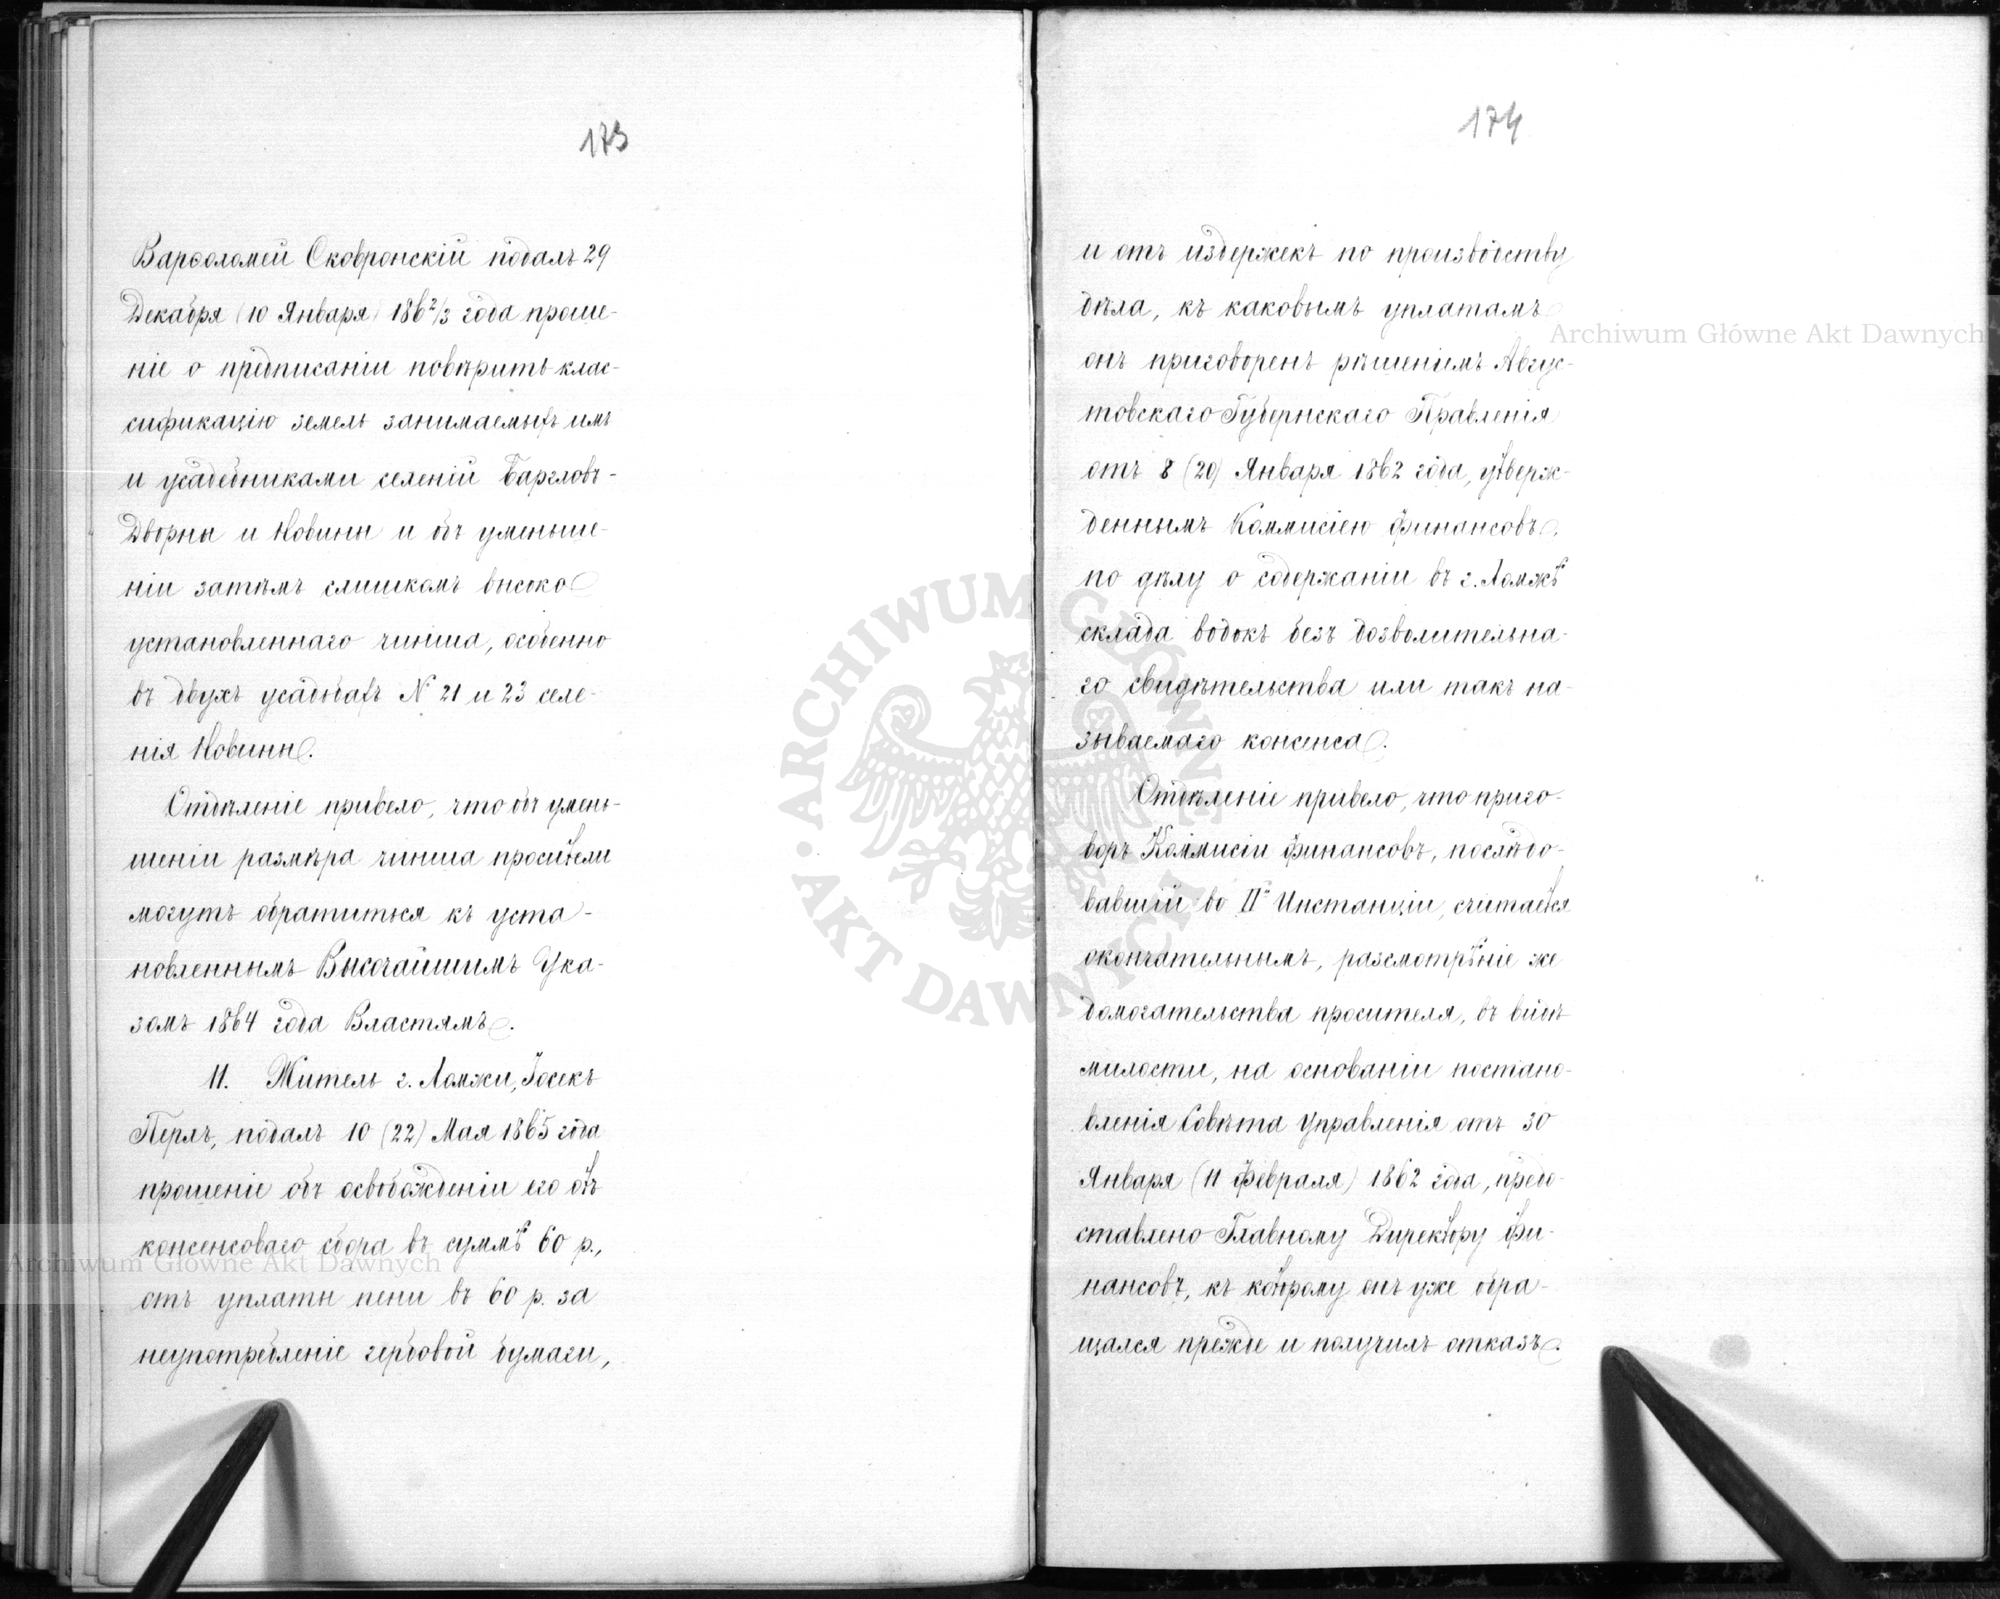 173
Варѳоломей Сковронскій подалъ 29
Декабря (10 Января) 186 2/3 года проше-
ніе о предписаніи повѣрить клас-
сификацію земель занимаемыхъ имъ
и усадебниками селеній Баргловъ-
Дворны и Новины и объ уменьше-
ніи затѣмъ слишкомъ высоко
установленнаго чинша, особенно
въ двухъ усадьбахъ № 21 и 23 селе-
нія Новины.
Отдѣленіе привело, что объ умень-
шеніи размѣра чинша просители
могутъ обратиться къ уста-
новленнымъ Высочайшимъ Ука-
зомъ 1864 года Властямъ.
11. Житель г. Ломжи, Іосекъ
Перлъ, подалъ 10 (22) Мая 1865 года
прошеніе объ освобожденіи его отъ
консенсоваго сбора въ суммѣ 60 р.,
отъ уплаты пени въ 60 р. за
неупотребленіе гербовой бумаги,
174
и отъ издержекъ по производству
дѣла, къ каковымъ уплатамъ
онъ приговоренъ рѣшеніемъ Авгус-
товскаго Губернскаго Правленія
отъ 8 (20) Января 1862 года, утверж-
деннымъ Коммисіею Финансовъ,
по дѣлу о содержаніи въ г. Ломжѣ
склада водокъ безъ дозволительна-
го свидѣтельства или такъ на-
зываемаго консенса.
Отдѣленіе привело, что приго-
воръ Коммисіи Финансовъ, послѣдо-
вавшій во IIй Инстанціи, считается
окончательнымъ, разсмотрѣніе же
домогательства просителя, въ видѣ
милости, на основаніи постано-
вленія Совѣта Управленія отъ 30
Января (11 Февраля) 1862 года, предо-
ставлено Главному Директору Фи-
нансовъ, къ которому онъ уже обра-
щался прежде и получилъ отказъ.
Archiwum Główne Akt Dawnych
Archiwum Główne Akt Dawnych
ARCHIWUM GŁÓWNE AKT DAWNYCH